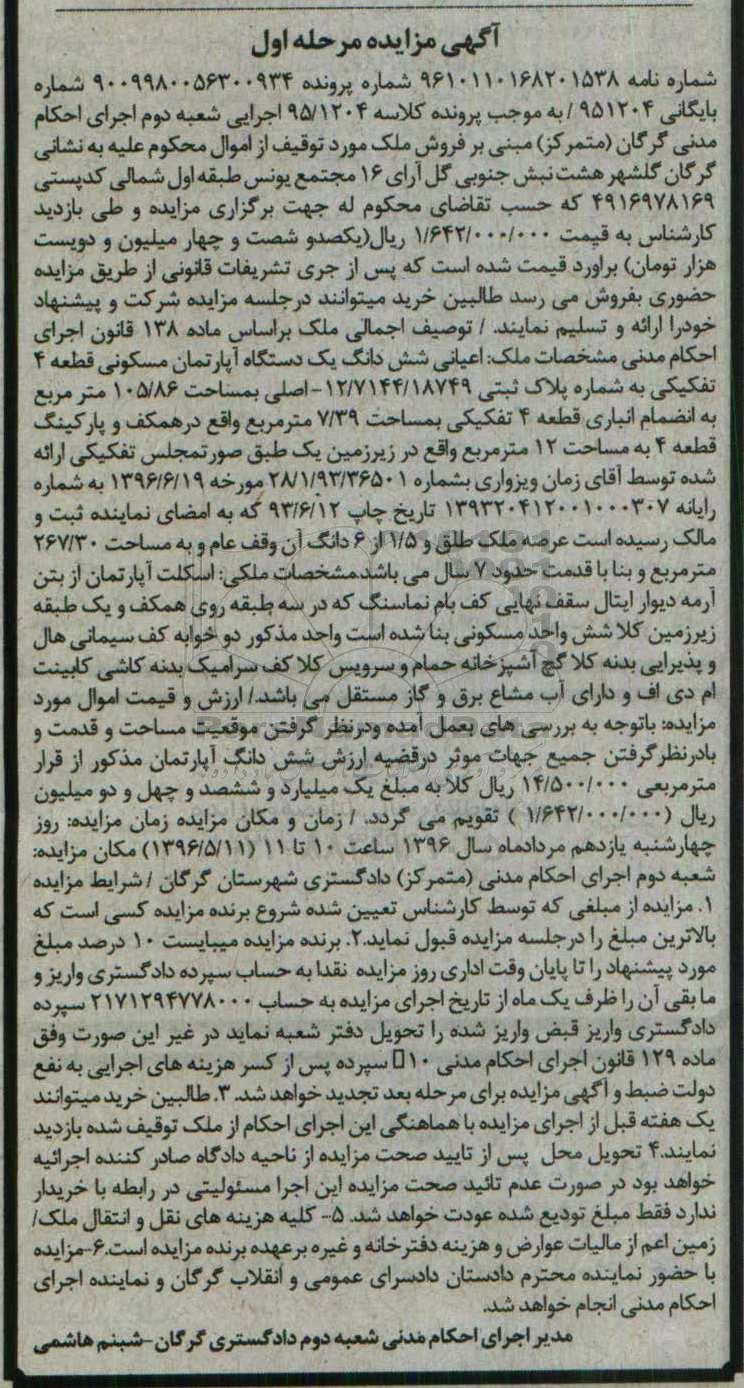 آگهی مزایده مرحله اول
شماره نامه ۹۶۱۰۱۱۰۱۶۸۲۰۱۵۳۸ شماره پرونده ۹۰۰۹۹۸۰۰۵۶۳۰۰۹۳۴ شماره
بایگانی ۹۵۱۲۰۴ / به موجب پرونده کلاسه ۹۵/۱۲۰۴ اجرایی شعبه دوم اجرای احکام
مدنی گرگان (متمرکز) مبنی بر فروش ملک مورد توقیف از اموال محکوم علیه به نشانی
گرگان گلشهر هشت نبش جنوبی گل آرای ۱۶ مجتمع یونس طبقه اول شمالی کدپستی
۴۹۱۶۹۷۸۱۶۹ که حسب تقاضای محکوم له جهت برگزاری مزایده و طی بازدید
کارشناس به قیمت ۱/۶۴۲/۰۰۰/۰۰۰ ریال(یکصدو شصت و چهار میلیون و دویست
هزار تومان) براورد قیمت شده است که پس از جری تشریفات قانونی از طریق مزایده
حضوری بفروش می رسد طالبین خرید میتوانند درجلسه مزایده شرکت و پیشنهاد
خودرا ارائه و تسلیم نمایند. / توصیف اجمالی ملک براساس ماده ۱۳۸ قانون اجرای
احکام مدنی مشخصات ملک: اعیانی شش دانگ یک دستگاه آپارتمان مسکونی قطعه ۴
تفکیکی به شماره پلاک ثبتی ۱۲/۷۱۴۴/۱۸۷۴۹-اصلی بمساحت ۱۰۵/۸۶ متر مربع
به انضمام انباری قطعه ۴ تفکیکی بمساحت ۷/۳۹ مترمربع واقع درهمکف و پارکینگ
قطعه ۴ به مساحت ۱۲ مترمربع واقع در زیرزمین یک طبق صورتمجلس تفکیکی ارائه
شده توسط آقای زمان ویزواری بشماره ۲۸/۱/۹۳/۳۶۵۰۱ مورخه ۱۳۹۶/۶/۱۹ به شماره
رایانه ۱۳۹۳۲۰۴۱۲۰۰۱۰۰۰۳۰۷ تاریخ چاپ ۹۳/۶/۱۲ که به امضای نماینده ثبت و
مالک رسیده است عرصه ملک طلق و ۱/۵ از ۶ دانگ آن وقف عام و به مساحت ۲۶۷/۳۰
مترمربع و بنا با قدمت حدود ۷ سال می باشد.مشخصات ملکی: اسکلت آپارتمان از بتن
آرمه دیوار ایتال سقف نهایی کف بام نماسنگ که در سه طبقه روی همکف و یک طبقه
زیرزمین کلا شش واحد مسکونی بنا شده است واحد مذکور دو خوابه کف سیمانی هال
و پذیرایی بدنه کلا گچ آشپزخانه حمام و سرویس کلا کف سرامیک بدنه کاشی کابینت
ام دی اف و دارای آب مشاع برق و گاز مستقل می باشد./ ارزش و قیمت اموال مورد
مزایده: باتوجه به بررسی های بعمل آمده ودرنظر گرفتن موقعیت مساحت و قدمت و
بادرنظرگرفتن جمیع جهات موثر درقضیه ارزش شش دانگ آپارتمان مذکور از قرار
مترمربعی ۱۴/۵۰۰/۰۰۰ ریال کلا به مبلغ یک میلیارد و ششصد و چهل و دو میلیون
ریال (۱/۶۴۲/۰۰۰/۰۰۰ ) تقویم می گردد. / زمان و مکان مزایده زمان مزایده: روز
چهارشنبه یازدهم مردادماه سال ۱۳۹۶ ساعت ۱۰ تا ۱۱ (۱۳۹۶/۵/۱۱) مکان مزایده:
شعبه دوم اجرای احکام مدنی (متمرکز) دادگستری شهرستان گرگان / شرایط مزایده
۱. مزایده از مبلغی که توسط کارشناس تعیین شده شروع برنده مزایده کسی است که
بالاترین مبلغ را درجلسه مزایده قبول نماید.۲. برنده مزایده میبایست ۱۰ درصد مبلغ
مورد پیشنهاد را تا پایان وقت اداری روز مزایده نقدا به حساب سپرده دادگستری واریز و
ما بقی آن را ظرف یک ماه از تاریخ اجرای مزایده به حساب ۲۱۷۱۲۹۴۷۷۸۰۰۰ سپرده
دادگستری واریز قبض واریز شده را تحویل دفتر شعبه نماید در غیر این صورت وفق
ماده ۱۲۹ قانون اجرای احکام مدنی ۱۰□ سپرده پس از کسر هزینه های اجرایی به نفع
دولت ضبط و آگهی مزایده برای مرحله بعد تجدید خواهد شد. ۳. طالبین خرید میتوانند
یک هفته قبل از اجرای مزایده با هماهنگی این اجرای احکام از ملک توقیف شده بازدید
نمایند.۴ تحویل محل پس از تایید صحت مزایده از ناحیه دادگاه صادر کننده اجرائیه
خواهد بود در صورت عدم تائید صحت مزایده این اجرا مسئولیتی در رابطه با خریدار
ندارد فقط مبلغ تودیع شده عودت خواهد شد. ۵- کلیه هزینه های نقل و انتقال ملک/
زمین اعم از مالیات عوارض و هزینه دفترخانه و غیره برعهده برنده مزایده است.۶-مزایده
با حضور نماینده محترم دادستان دادسرای عمومی و انقلاب گرگان و نماینده اجرای
احکام مدنی انجام خواهد شد.
مدیر اجرای احکام مدنی شعبه دوم دادگستری گرگان-شبنم هاشمی